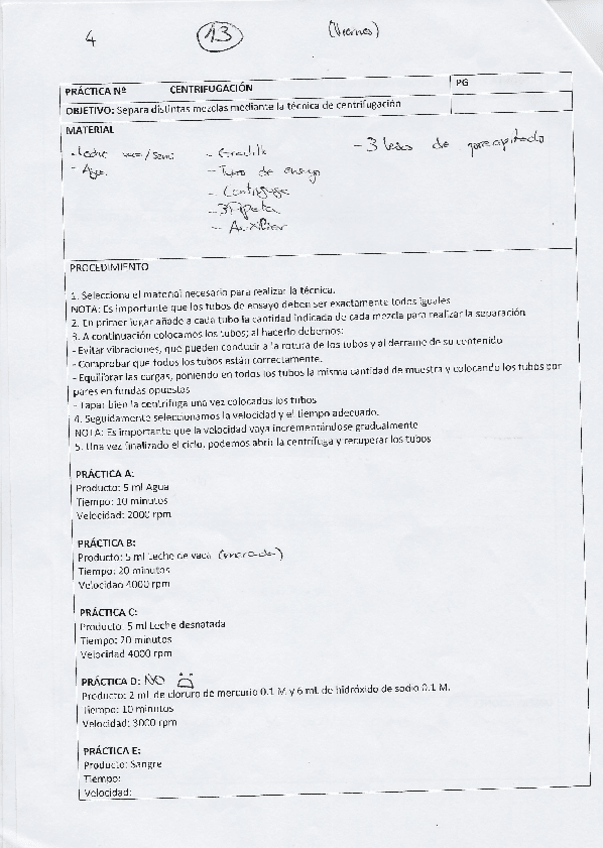 4 13 (Viernes)
PRÁCTICA Nº CENTRIFUGACIÓN PG
OBJETIVO: Separa distintas mezclas mediante la técnica de centrifugación
MATERIAL
- Leche vaca/semi - Gradilla - 3 Vasos de precipitado
- Agua. - Tubo de ensayo
- Centrifuga
- 3 Pipeta
- Auxiliar
PROCEDIMIENTO
1. Selecciona el material necesario para realizar la técnica.
NOTA: Es importante que los tubos de ensayo deben ser exactamente todos iguales
2. En primer lugar añade a cada tubo la cantidad indicada de cada mezcla para realizar la separación
3. A continuación colocamos los tubos; al hacerlo debemos:
- Evitar vibraciones, que pueden conducir a la rotura de los tubos y al derrame de su contenido
- Comprobar que todos los tubos están correctamente.
- Equilibrar las cargas, poniendo en todos los tubos la misma cantidad de muestra y colocando los tubos por
pares en fundas opuestas
- Tapar bien la centrifuga una vez colocados los tubos
4. Seguidamente seleccionamos la velocidad y el tiempo adecuado.
NOTA: Es importante que la velocidad vaya incrementándose gradualmente
5. Una vez finalizado el ciclo, podemos abrir la centrífuga y recuperar los tubos
PRÁCTICA A:
Producto: 5 ml Agua
Tiempo: 10 minutos
Velocidad: 2000 rpm
PRÁCTICA B:
Producto: 5 ml Leche de vaca
Tiempo: 20 minutos
Velocidad 4000 rpm
PRÁCTICA C:
Producto: 5 ml Leche desnatada
Tiempo: 20 minutos
Velocidad 4000 rpm
PRÁCTICA D: NO
Producto: 2 mL de cloruro de mercurio 0.1 M y 6 mL de hidróxido de sodio 0.1 M.
Tiempo: 10 minutos
Velocidad: 3000 rpm
PRÁCTICA E:
Producto: Sangre
Tiempo:
Velocidad: